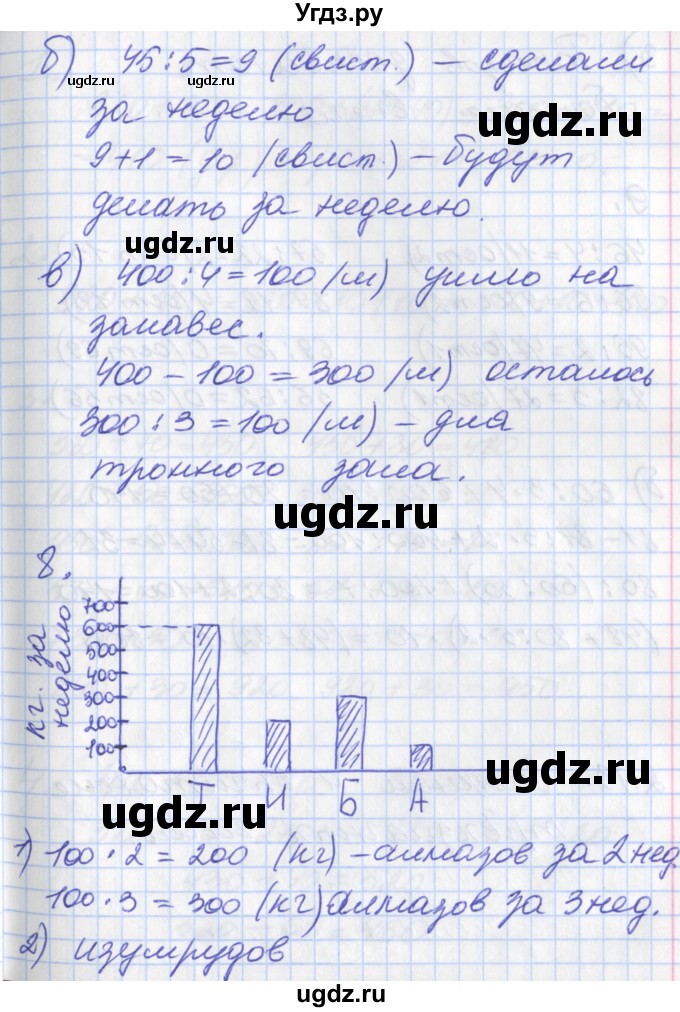 Угдз.ру
б) 45:5=9 (свист.) – сделали
ugdz.ru ugdz.ru
за неделю
ugdz.ru
9+1=10 (свист.) – будут
ugdz.ru
делать за неделю.
ugdz.ru
в) 400:4=100 (м) ушло на
занавес.
400 – 100 = 300 (м) осталось
300 : 3 = 100 (м) – для
тронного зала.
ugdz.ru
8.
кг. за
неделю
700
600
500
400
300
200
100
Т И Б А
ugdz.ru
ugdz.ru
1) 100 · 2 = 200 (кг) – алмазов за 2 нед.
100 · 3 = 300 (кг) алмазов за 3 нед.
2) изумрудов
ugdz.ru
ugdz.ru